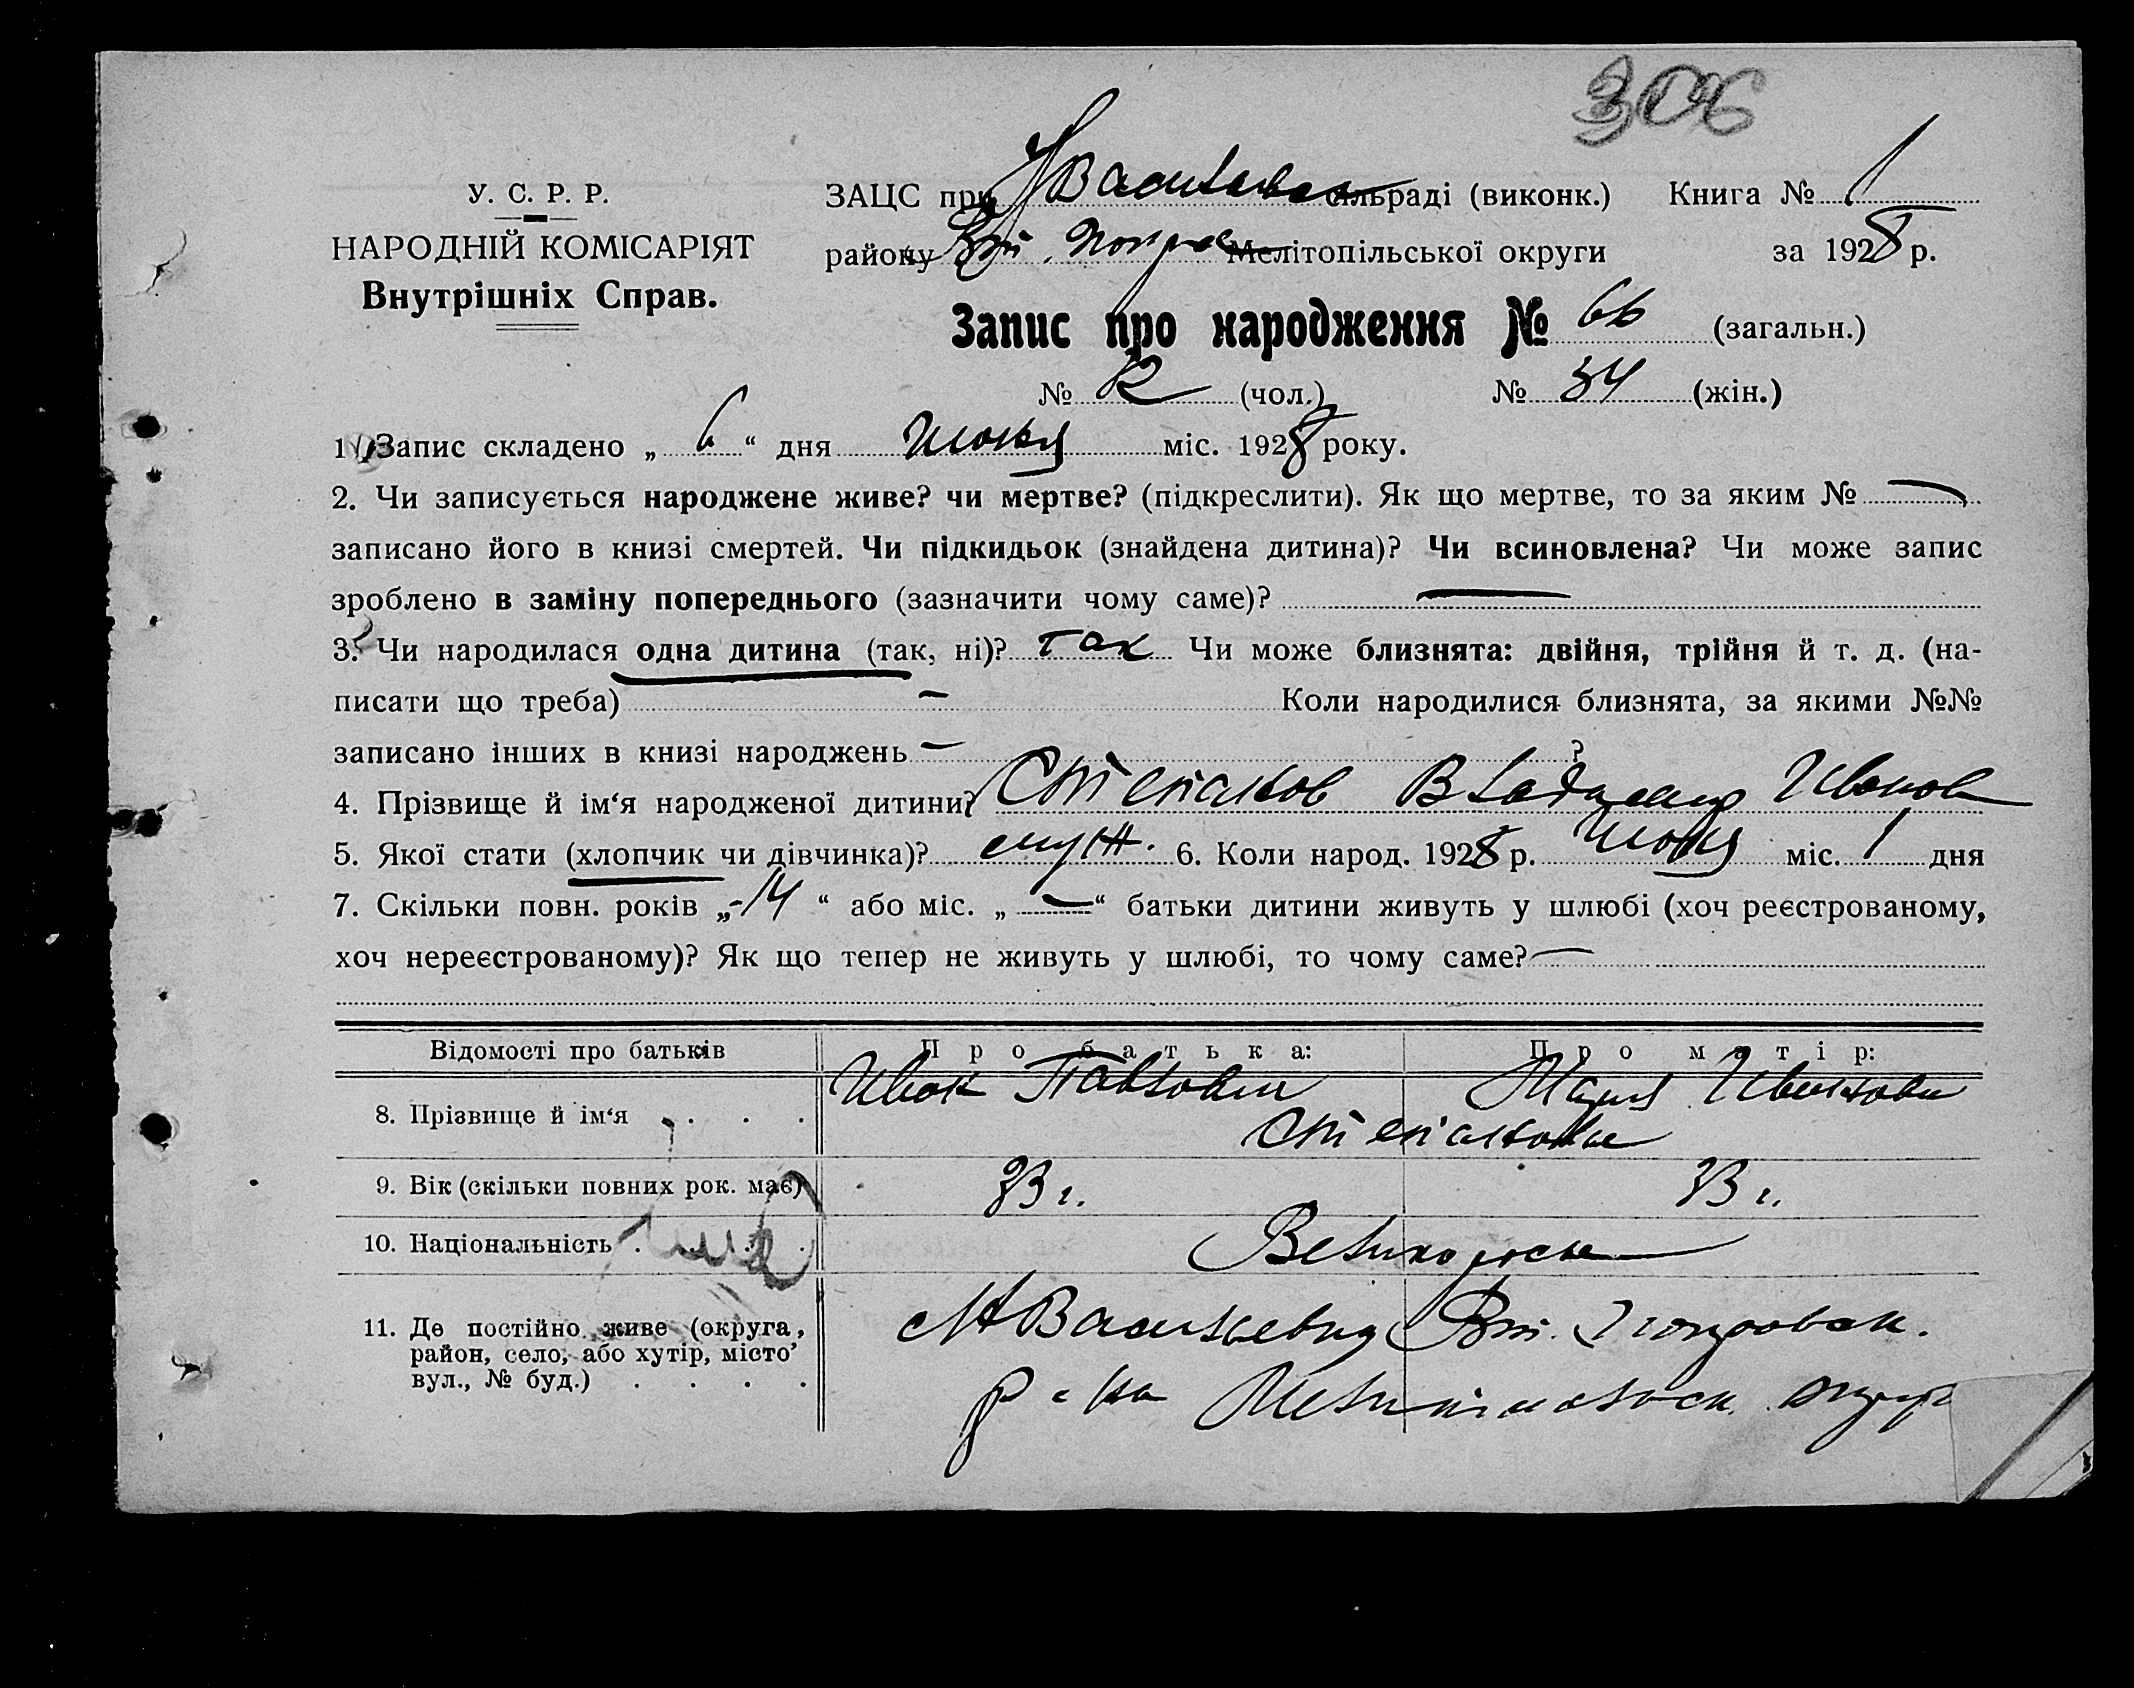 306
У. С. Р. Р.
НАРОДНІЙ КОМІСАРІЯТ
Внутрішніх Справ.
ЗАЦС при Н Васильев сільраді (виконк.) Книга № 1
району Вт. Покров Мелітопільської округи за 1928 р.
Запис про народження № 66 (загальн.)
№ 32 (чол.) № 34 (жін.)
1. Запис складено „ 6 “ дня Июня міс. 1928 року.
2. Чи записується народжене живе? чи мертве? (підкреслити). Як що мертве, то за яким № —
записано його в книзі смертей. Чи підкидьок (знайдена дитина)? Чи всиновлена? Чи може запис
зроблено в заміну попереднього (зазначити чому саме)? —
3. Чи народилася одна дитина (так, ні)? так Чи може близнята: двійня, трійня й т. д. (на-
писати що треба) — Коли народилися близнята, за якими №№
записано інших в книзі народжень — ?
4. Прізвище й ім‘я народженої дитини? Степанов Владимир Иванов
5. Якої стати (хлопчик чи дівчинка)? муж. 6. Коли народ. 1928 р. Июня міс. 1 дня
7. Скільки повн. років „-14 “ або міс. „ — “ батьки дитини живуть у шлюбі (хоч реєстрованому,
хоч нереєстрованому)? Як що тепер не живуть у шлюбі, то чому саме? —
Відомості про батьків Про батька: Про матір:
8. Прізвище й ім‘я Иван Павлович Мария Ивановна
Степановы
9. Вік (скільки повних рок. має) 33 г. 33 г.
10. Національність Великороссы
11. Де постійно живе (округа, Н Васильевка Вт. Покровск.
район, село, або хутір, місто’ р-на Мелитопольск. округ
вул., № буд.)